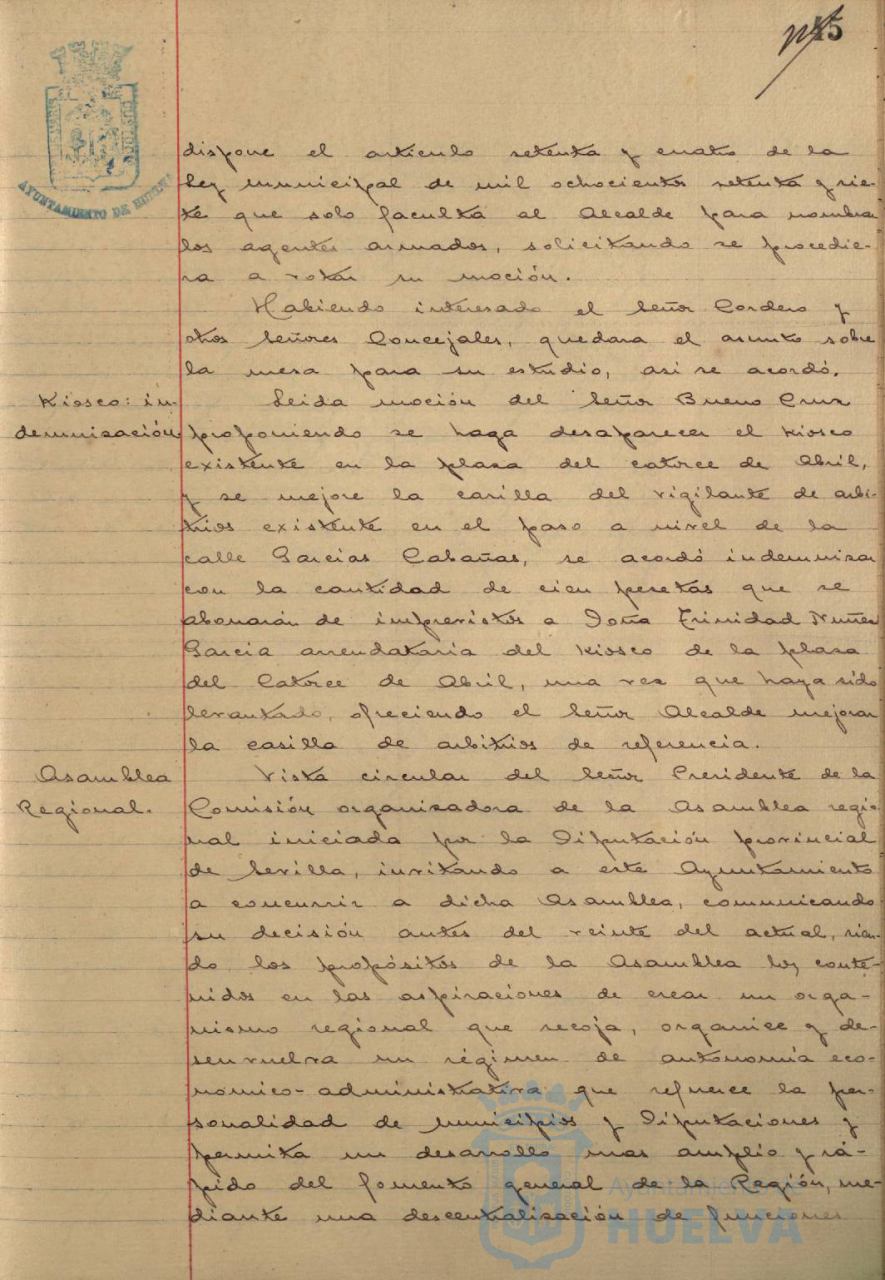 45
AYUNTAMIENTO DE HUELVA
dispone el artículo setenta y cuatro de la
Ley municipal de mil ochocientos setenta y sie-
te que solo faculta al Alcalde para nombrar
los agentes armados, solicitando se procedie-
ra a votar su moción.
Habiendo interesado el Señor Cordero y
otros Señores Concejales, quedara el asunto sobre
la mesa para su estudio, así se acordó.
Kiosco: in-
demnización
Leida moción del Señor Bueno Cruz
proponiendo se haga desaparecer el kiosco
existente en la plaza del catorce de Abril,
y se mejore la casilla del vigilante de arbi-
trios existente en el paso a nivel de la
calle Garcías Cabañas, se acordó indemnizar
con la cantidad de cien pesetas que se
abonarán de imprevistos a Doña Trinidad Nuñez
Garcia arrendataria del kiosco de la plaza
del Catorce de Abril, una vez que haya sido
levantado, ofreciendo el Señor Alcalde mejorar
la casilla de arbitrios de referencia.
Asamblea
Regional.
Vista circular del Señor Presidente de la
Comisión organizadora de la Asamblea regio-
nal iniciada por la Diputación provincial
de Sevilla, invitando a este Ayuntamiento
a concurrir a dicha Asamblea, comunicando
su decisión antes del veinte del actual, sien-
do los propósitos de la Asamblea los conte-
nidos en las aspiraciones de crear un orga-
nismo regional que recoja, organice y de-
senvuelva un régimen de autonomía eco-
nómico-administrativa que refuerce la per-
sonalidad de municipios y Diputaciones y
permita un desarrollo mas amplio y rá-
pido del fomento general de la Región, me-
diante una descentralización de funciones
Ayuntamiento
HUELVA